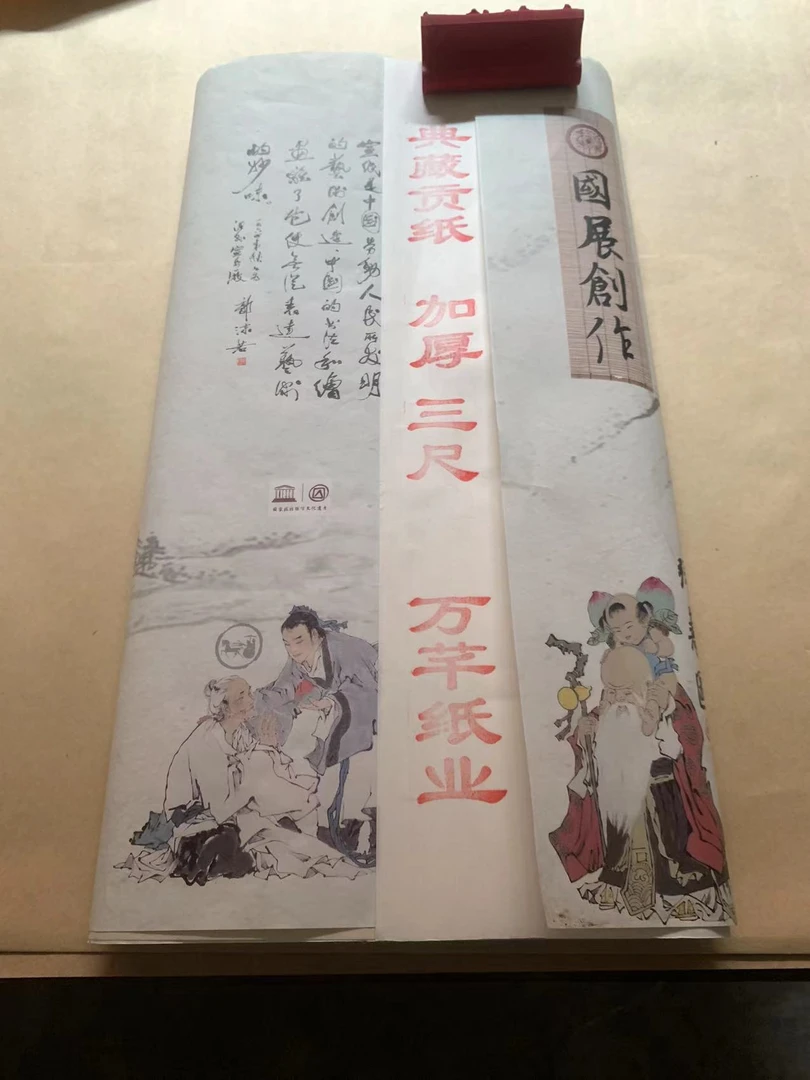 國展創作
典藏贡纸 加厚 三尺 万芊纸业
宣纸是中国劳动人民所发明
的艺术创造，中国的书法和繪
画离了它便无从表达艺术
的妙味。
郭沫若